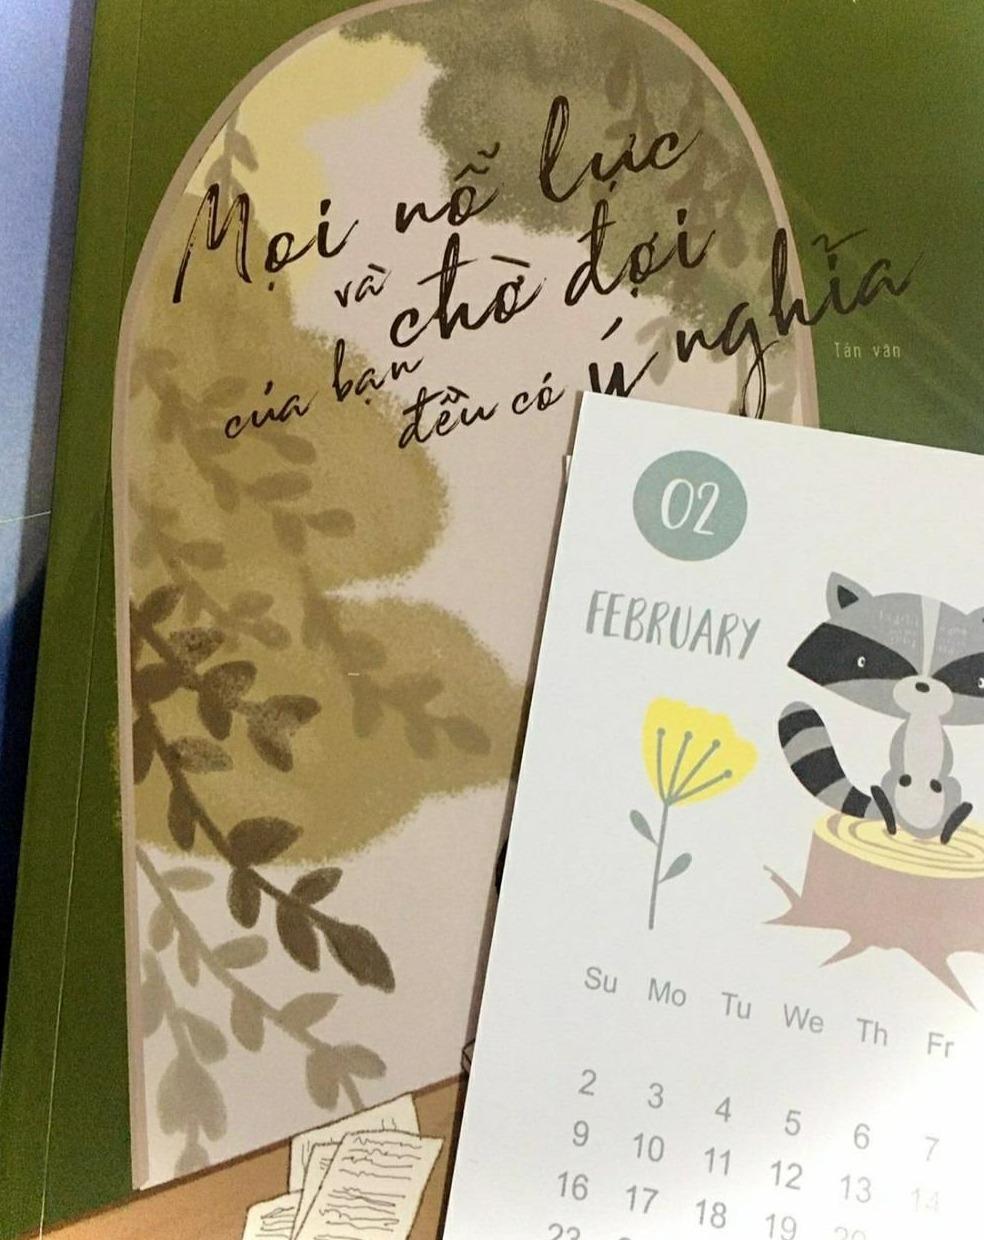 Mọi nỗ lực
và chờ đợi
của bạn
đều có ý nghĩa
Tản văn
02
FEBRUARY
Su Mo Tu We Th Fr
2 3 4 5 6 7
9 10 11 12 13 14
16 17 18 19 20
23